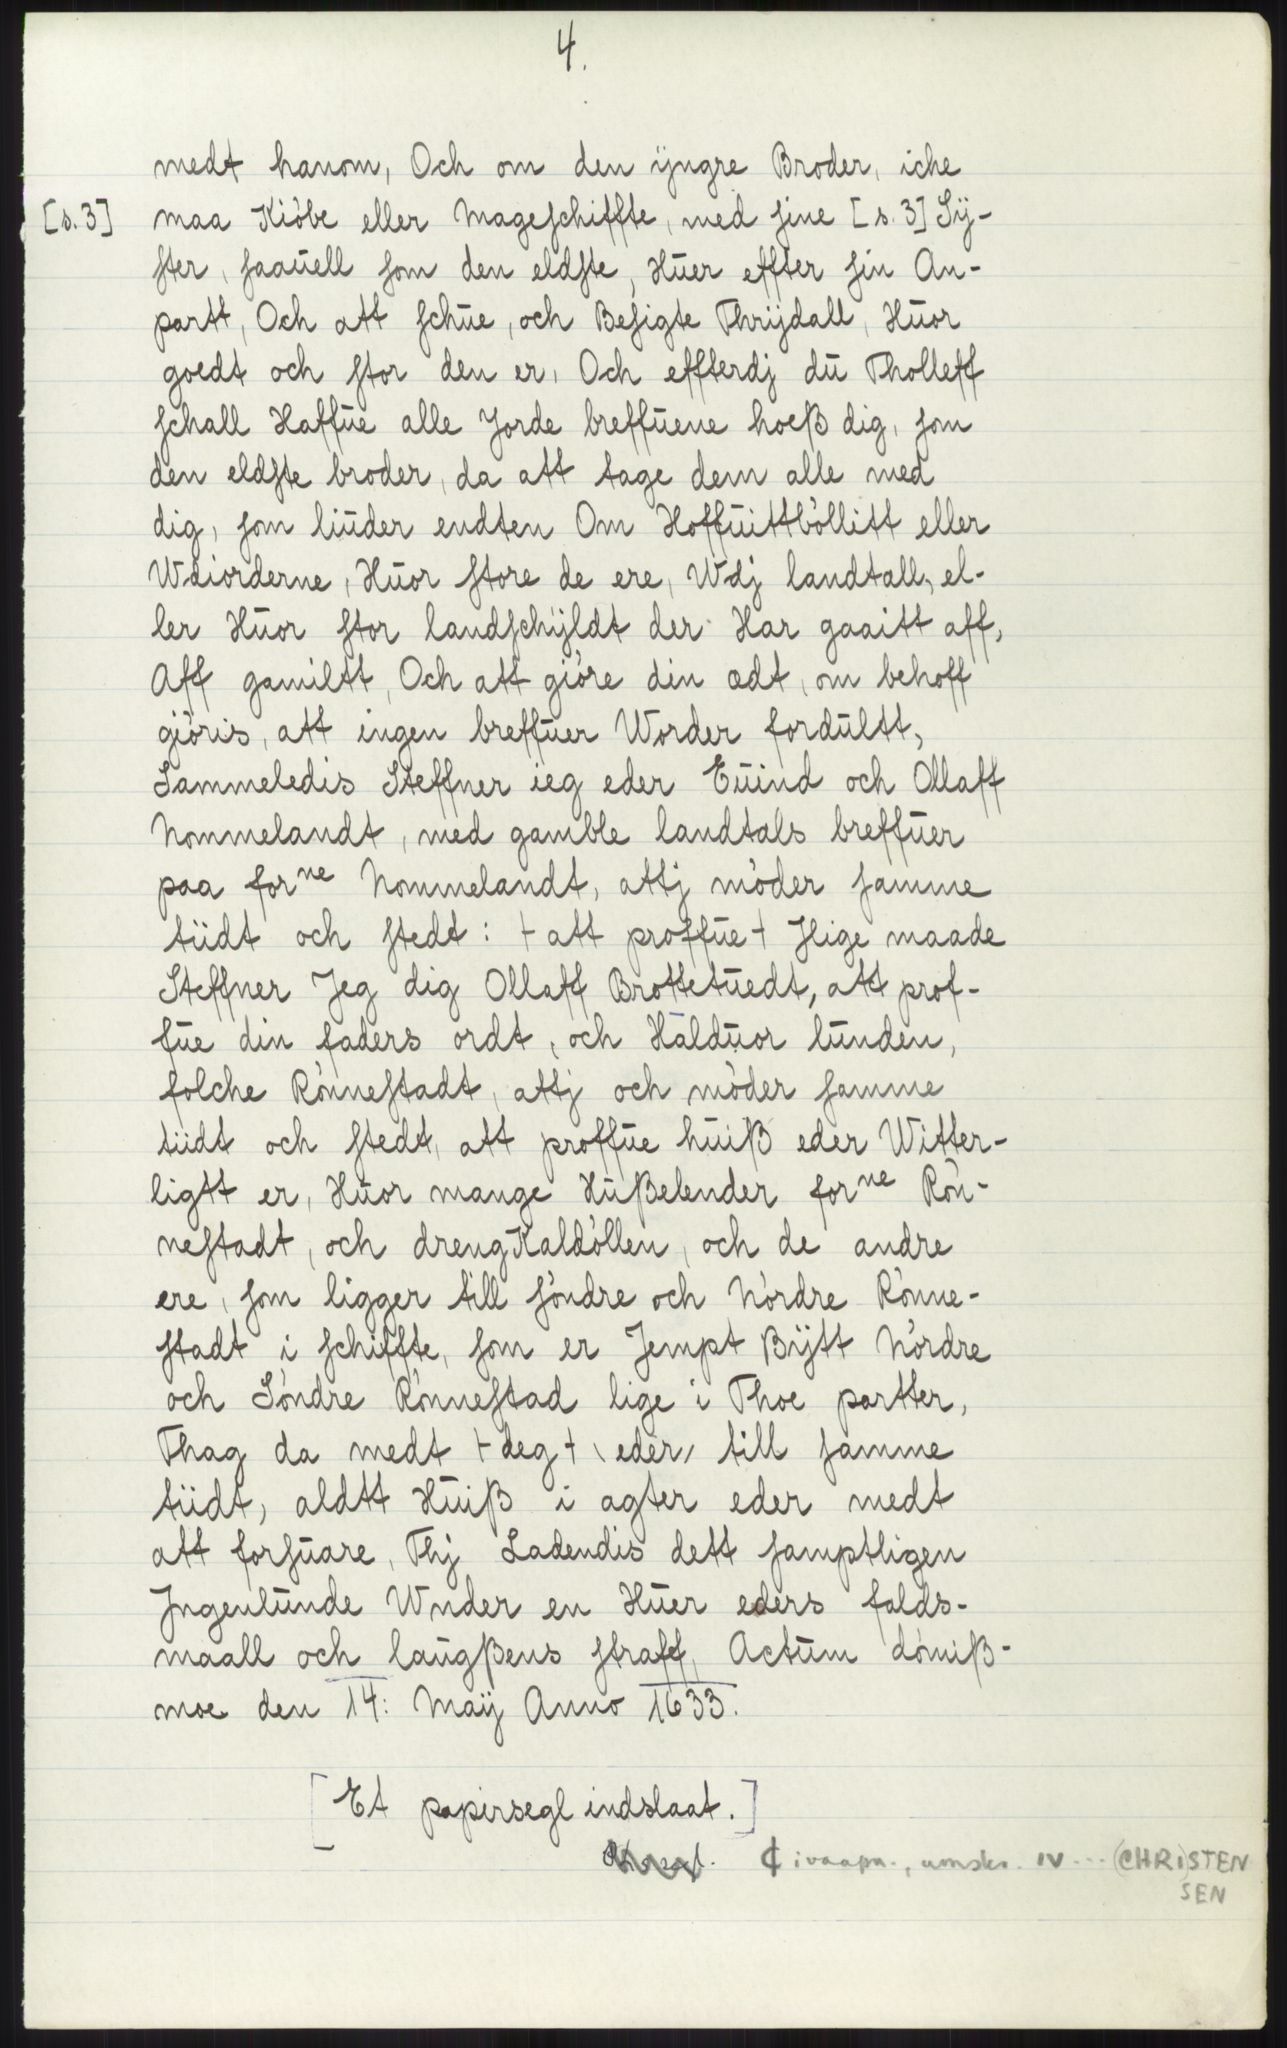 4.
medt hanom, Och om den ÿngre Broder, iche
[s.3] maa Kiöbe eller mageſchiffte, med ſine [s.3] Sÿ-
ſter, ſaauell ſom den eldſte, Huer effter ſin An-
partt, Och att ſchue, och Beſigte Thrijdall, Huor
goedt och ſtor den er, Och effterdj du Tholleff
ſchall Haffue alle Jorde breffuene hoeß dig, ſom
den eldſte broder, da att tage dem alle med
dig, ſom liuder endten Om Hoffuittböllitt eller
Wdiorderne, Huor ſtore de ere, Wdj landtall, el-
ler Huor ſtor landſchÿldt der Har gaaitt aff,
Aff gamiltt, Och att giöre din ædt, om behoff
giöris, att ingen breffuer Worder fordultt,
Sammeledis Steffner ieg eder Euind och Ollaff
Nommelandt, med gamble landtals breffuer
paa forne Nommelandt, attj möder ſamme
tiidt och ſtedt: + att proffue + Jlige maade
Steffner Jeg dig Ollaff Brottetuedt, att prof-
fue din faders ordt, och Halduor lunden,
folche Rönneſtadt, attj och möder ſamme
tiidt och ſtedt, att proffue huiß eder Witter-
ligtt er, Huor mange Hußelender forne Rön-
neſtadt, och dreng Kaldöllen, och de andre
ere, ſom ligger till ſöndre och Nördre Rönne-
ſtadt i ſchiffte, ſom er Jempt Bÿtt Nördre
och Söndre Rönneſtad lige i Thoe partter,
Thag da medt + deg + \ eder / till ſamme
tiidt, aldtt Huiß i agter eder medt
att forſuare, Thj Ladendis dett ſamptligen
Jngenlunde Wnder en Huer eders falds-
maall och laugßens ſtraff, Actum dömiß-
moe den 14: Maÿ Anno 1633.
[Et papirsegl indslaat.]
₵ i vaapn., umskr. IV... (CHRI)STEN
SEN